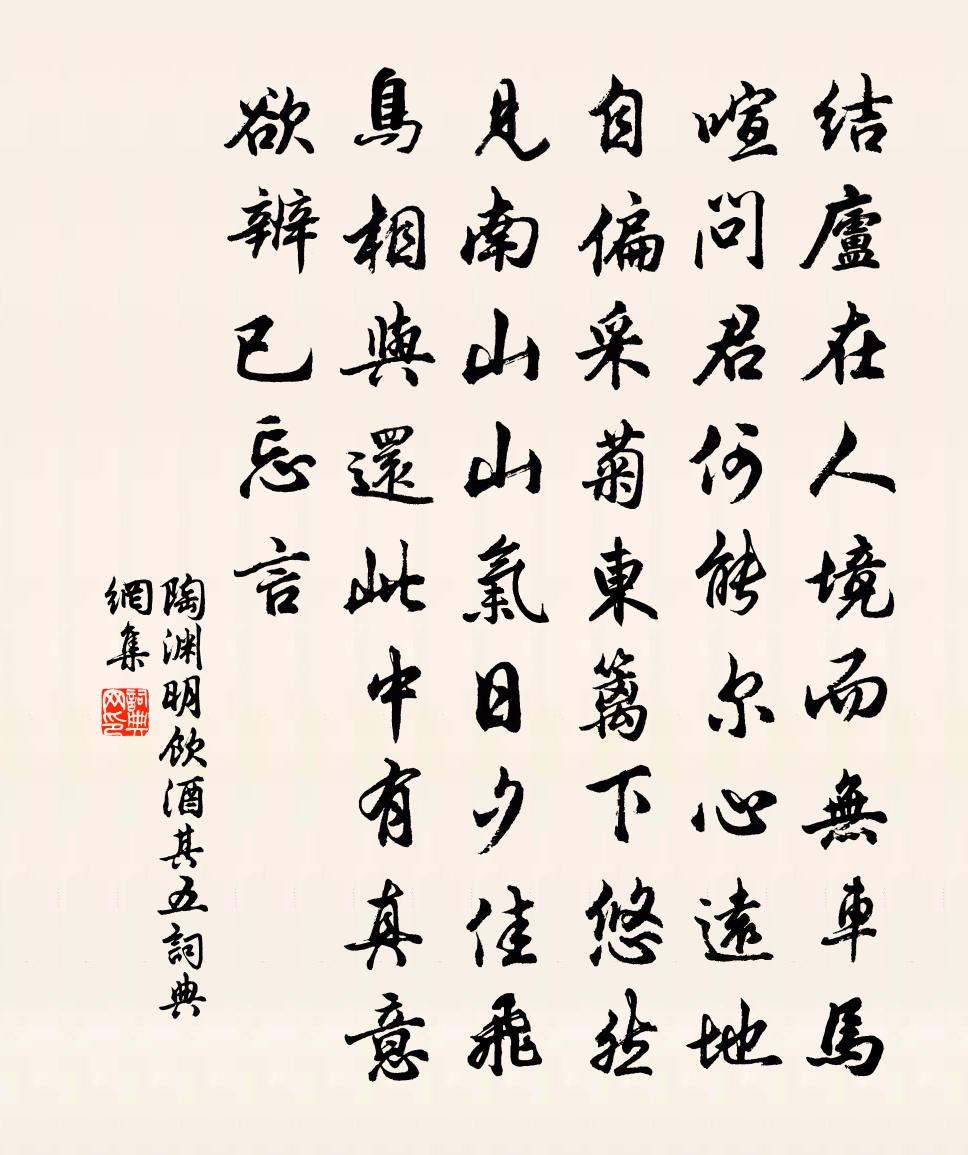 结廬在人境而無車馬
喧問君何能尔心遠地
自偏采菊東籬下悠然
見南山山氣日夕佳飛
鳥相與還此中有真意
欲辨已忘言
陶渊明飲酒其五詞典
網集
詞典
网印